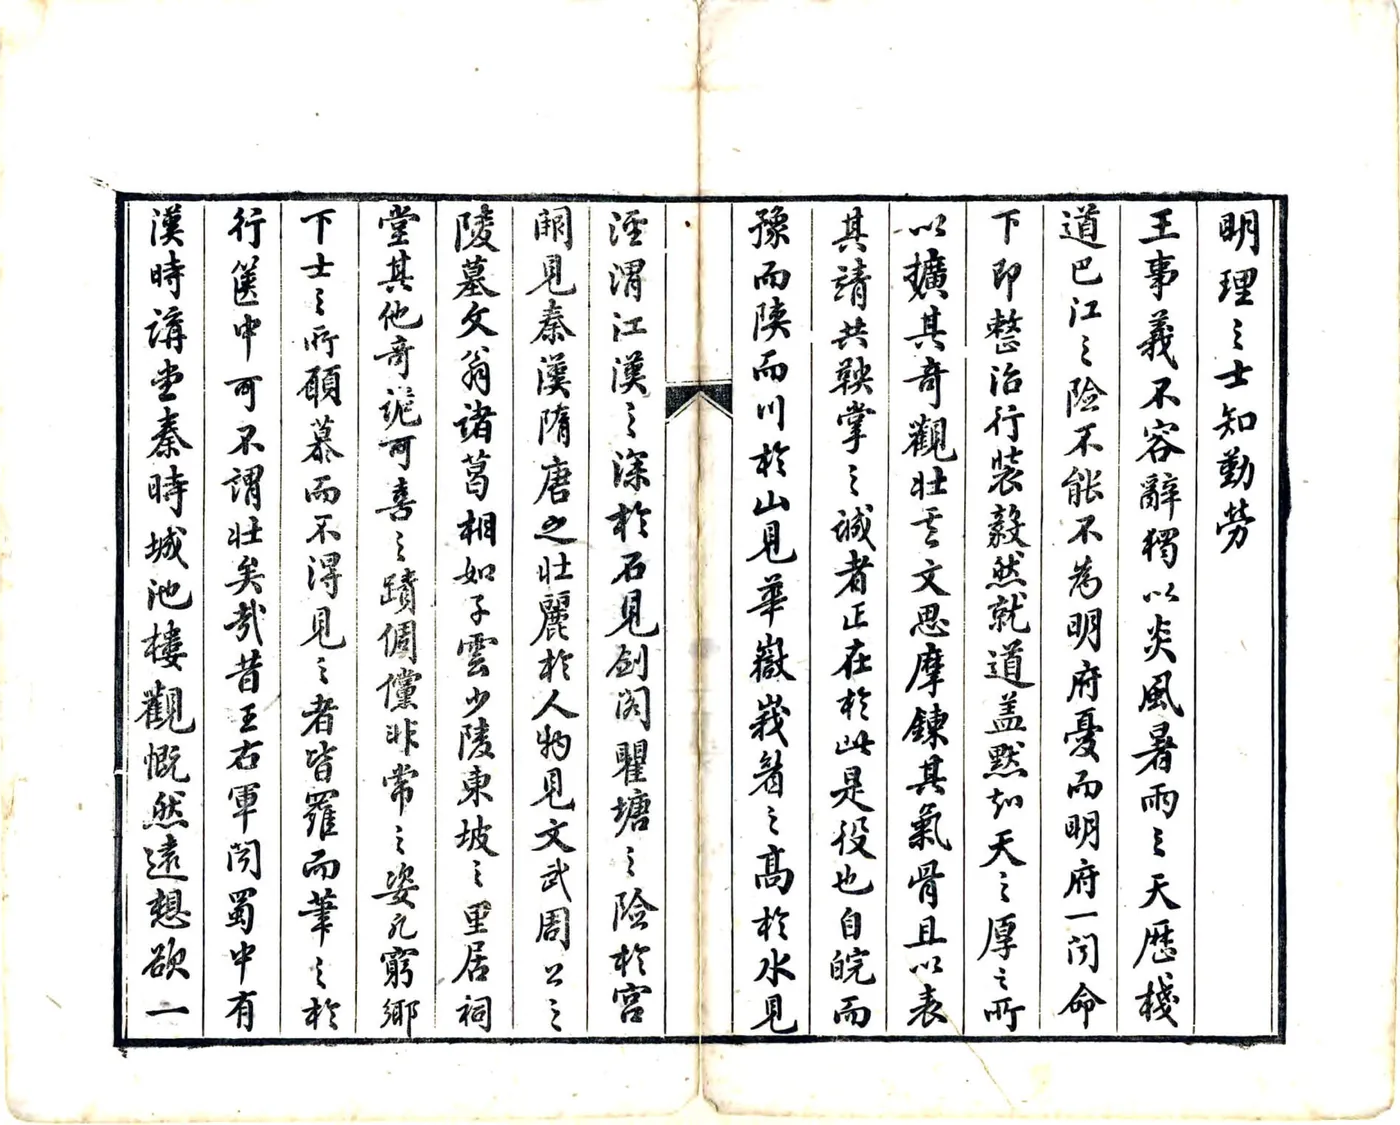 明理之士知勤勞
王事義不容辭獨以炎風暑雨之天歷棧
道巴江之險不能不為明府憂而明府一聞命
下即整治行裝毅然就道蓋默知天之厚之所
以擴其奇觀壯其文思摩鍊其氣骨且以表
其靖共鞅掌之誠者正在於此是役也自皖而
豫而陝而川於山見華嶽峩眉之高於水見
涇渭江漢之深於石見劍閣瞿塘之險於宮
闕見秦漢隋唐之壯麗於人物見文武周公之
陵墓文翁諸葛相如子雲少陵東坡之里居祠
堂其他奇詭可喜之蹟倜儻非常之姿凡窮鄉
下士之所願慕而不得見之者皆羅而筆之於
行篋中可不謂壯矣哉昔王右軍聞蜀中有
漢時講堂秦時城池樓觀慨然遠想欲一